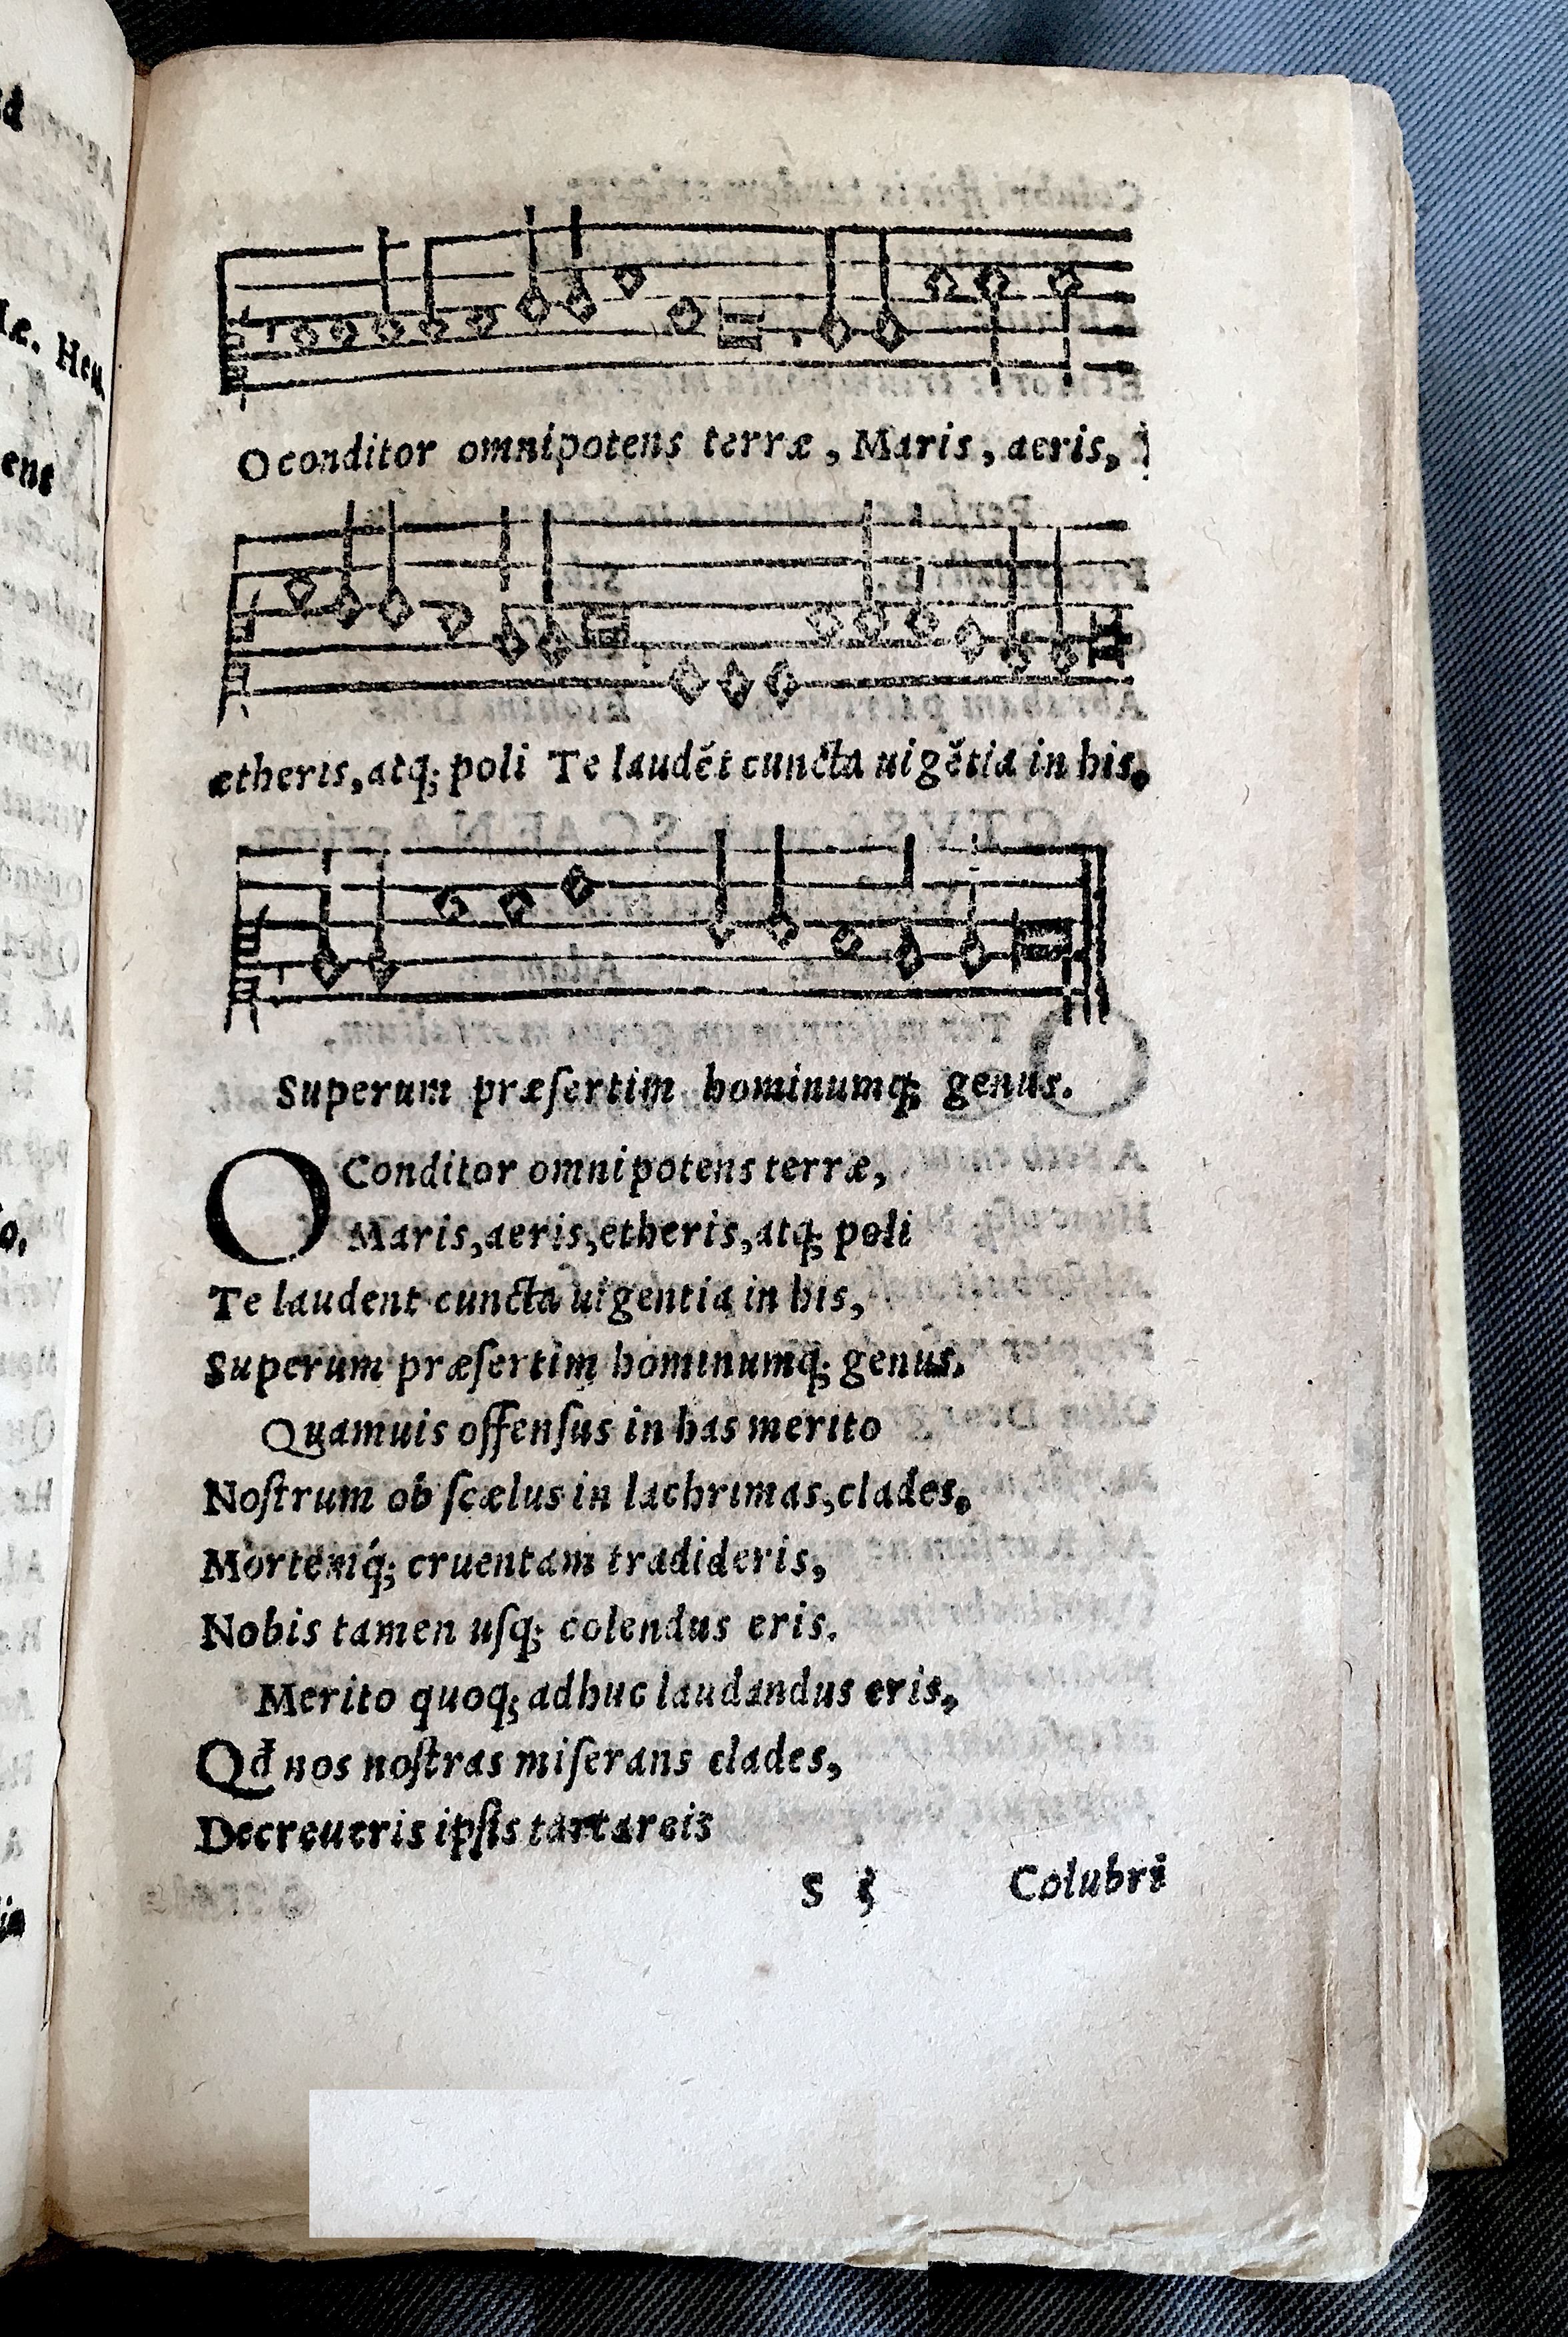 O conditor omnipotens terræ, Maris, aeris,
ætheris, atq; poli Te laudẽt cuncta uigẽtia in his,
Superum præſertim hominumq; genus.
O Conditor omnipotens terræ,
Maris, aeris, etheris, atq; poli
Te laudent cuncta uigentia in his,
Superum præſertim hominumq; genus.
Quamuis offenſus in has merito
Noſtrum ob ſcælus in lachrimas, clades,
Mortemq́; cruentam tradideris,
Nobis tamen uſq; colendus eris.
Merito quoq; adhuc laudandus eris,
Qđ nos noſtras miſerans clades,
Decreueris ipſis tartareis
S Colubri